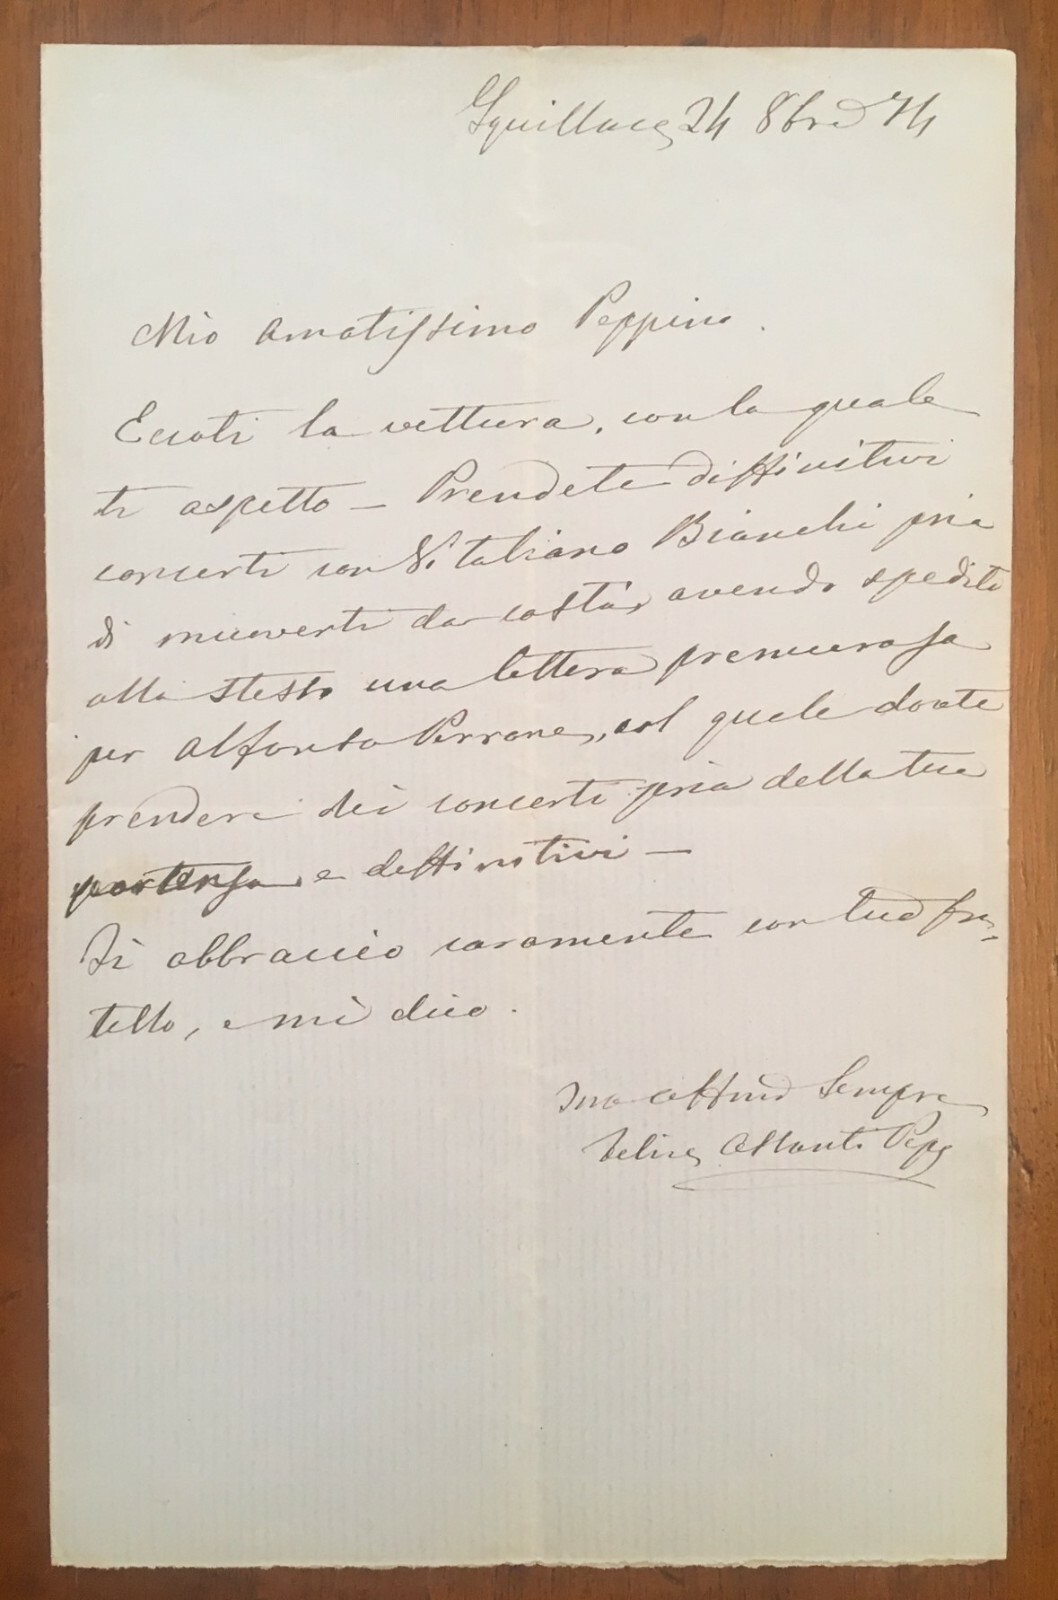 Squillace, 24 8bre 74
Mio amatissimo Peppino.
Eccoti la vettura, con la quale
ti aspetto — Prendete diffinitivi
concerti con Vitaliano Bianchi pria
di muoverti da costà, avendo spedito
allo stesso una lettera premurosa
per Alfonso Perrone, col quale dovete
prendere dei concerti pria della tua
partenza e deffinitivi —
Ti abbraccio caramente con tuo fra-
tello, e mi dico.
Tuo affmo Sempre
Felice Assanti Pepe